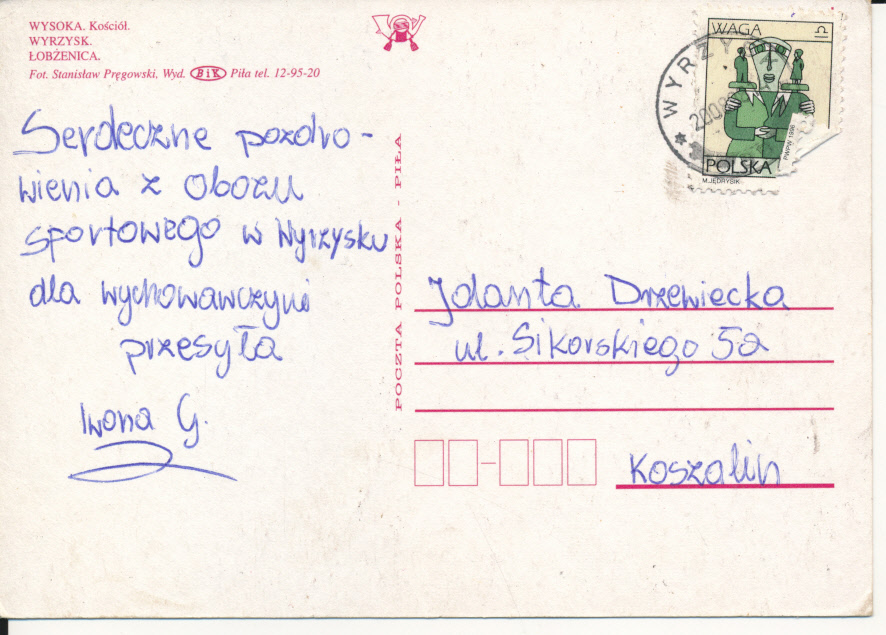 WYSOKA. Kościół.
WYRZYSK.
ŁOBŻENICA.
Fot. Stanisław Pręgowski, Wyd. BiK Piła tel. 12-95-20
Serdeczne pozdro-
wienia z obozu
sportowego w Wyrzysku
dla wychowawczyni
przesyła
Iwona G.
POCZTA POLSKA - PIŁA
WAGA ♎
WYRZY
POLSKA
M.JĘDRYSIK
PWPW 1996
Jolanta Drzewiecka
ul. Sikorskiego 52
Koszalin